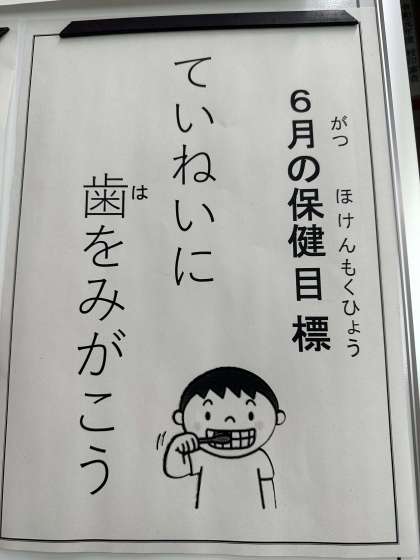 6月の保健目標
がつ ほけんもくひょう
ていねいに
歯をみがこう
は